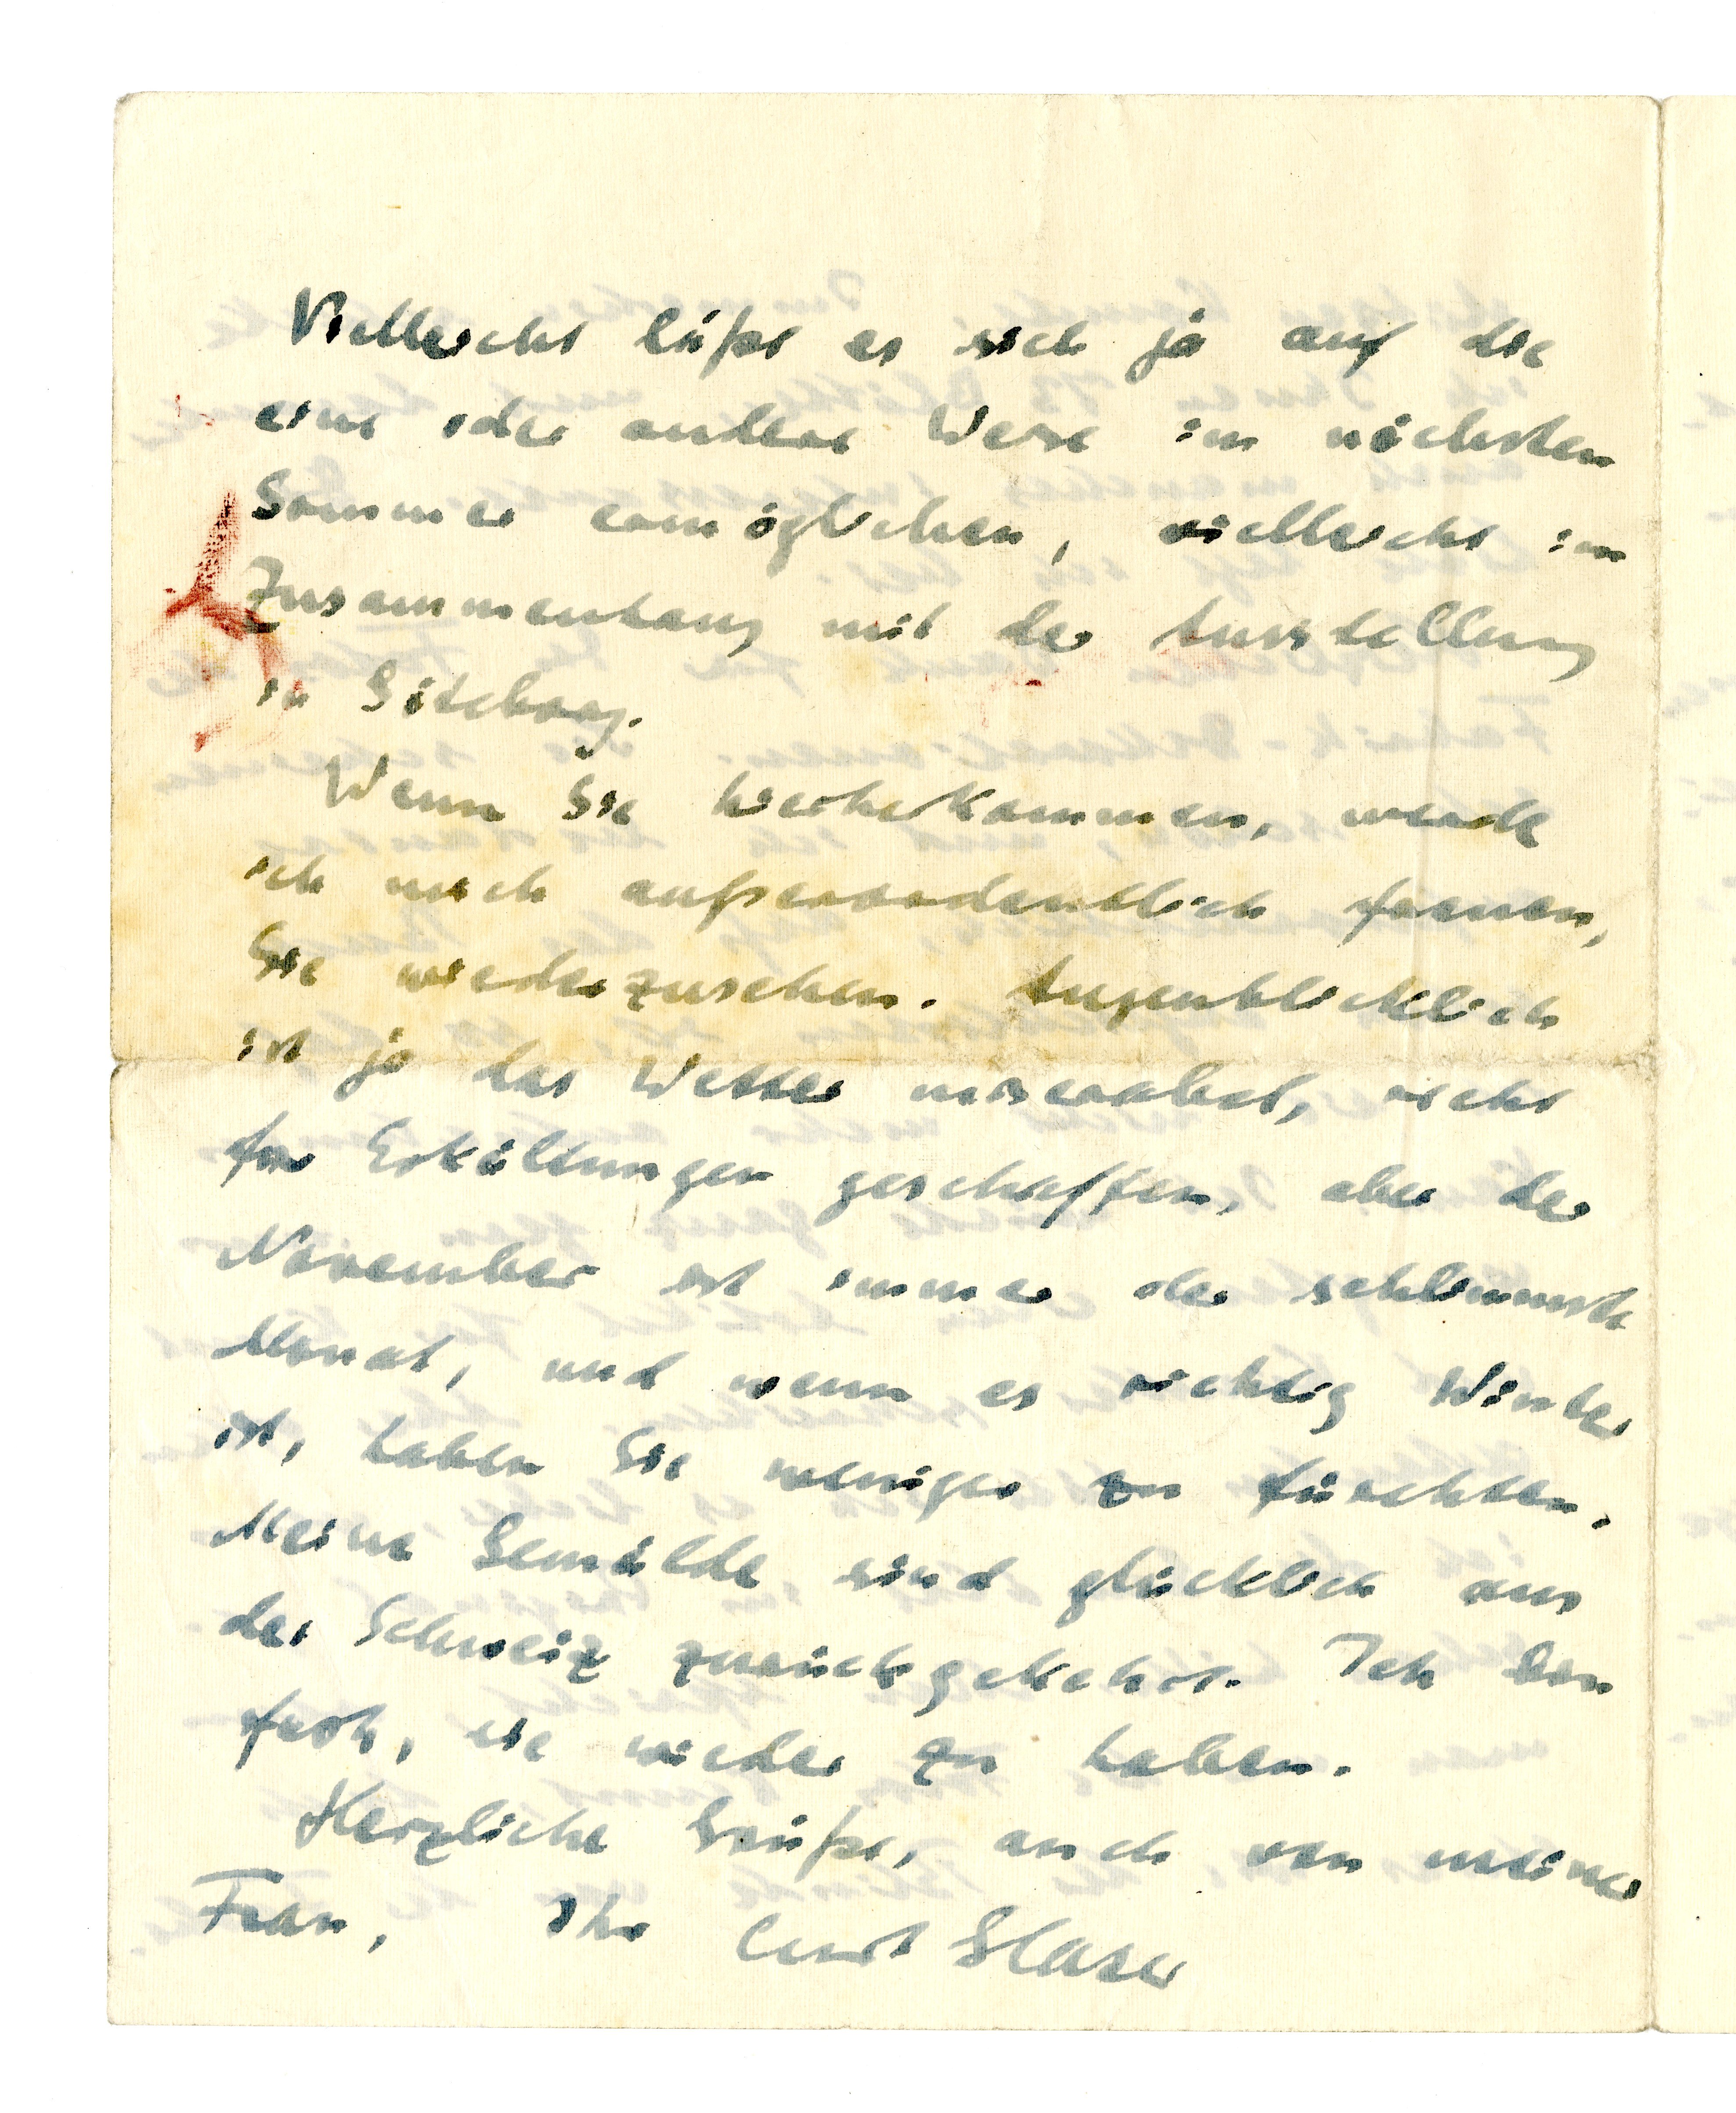 Vielleicht läßt es sich ja auf die
eine oder andere Weise im nächsten
Sommer ermöglichen, vielleicht im
Zusammenhang mit der Ausstellung
in Göteborg.
Wenn Sie hierherkommen, werde
ich mich außerordentlich freuen,
Sie wiederzusehen. Augenblicklich
ist ja das Wetter miserabel, recht
für Erkältungen geschaffen, aber der
November ist immer der schlimmste
Monat, und wenn es richtig Winter
ist, haben Sie weniger zu fürchten.
Meine Gemälde sind glücklich aus
der Schweiz zurückgekehrt. Ich bin
froh, sie wieder zu haben.
Herzliche Grüße, auch von meiner
Frau, Ihr Curt Glaser